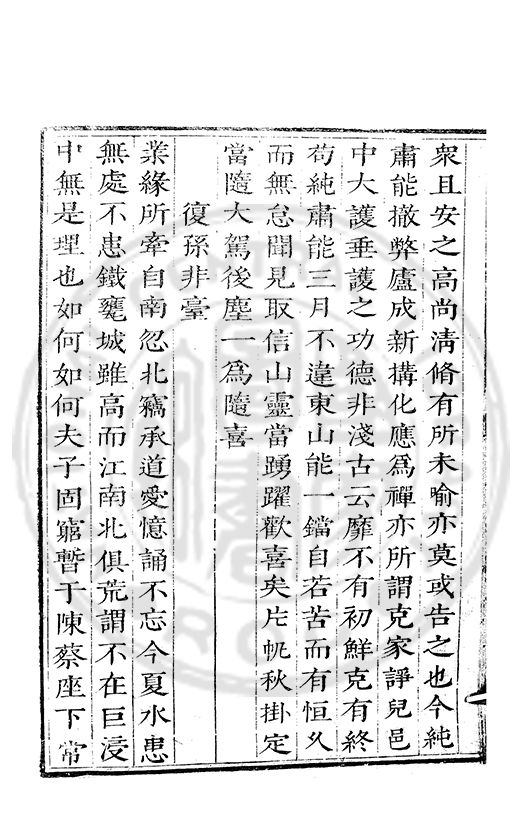 衆且安之高尚淸脩有所未喻亦莫或告之也今純
肅能撤弊廬成新搆化應爲禪亦所謂克家諍兒邑
中大護垂護之功德非淺古云靡不有初鮮克有終
苟純肅能三月不違東山能一鐺自若苦而有恒久
而無怠聞見取信山靈當踴躍歡喜矣片帆秋掛定
當隨大駕後塵一爲隨喜
復孫非臺
業緣所牽自南忽北竊承道愛憶誦不忘今夏水患
無處不患鐵甕城雖高而江南北俱荒謂不在巨浸
中無是理也如何如何夫子固窮暫于陳蔡座下常